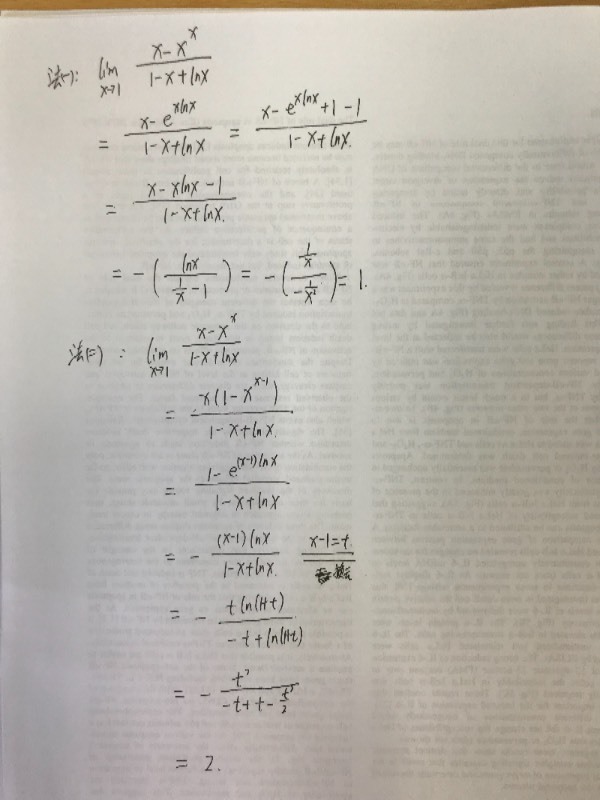 法(一): lim x→1 (x-x^x)/(1-x+lnx)
= (x-e^{xlnx})/(1-x+lnx) = (x-e^{xlnx}+1-1)/(1-x+lnx.)
= (x-xlnx-1)/(1-x+lnx.)
= -(lnx/(1/x-1)) = -((1/x)/(-1/x²)) = 1.
法(二): lim x→1 (x-x^x)/(1-x+lnx)
= x(1-x^{x-1})/(1-x+lnx)
= (1-e^{(x-1)lnx})/(1-x+lnx)
= -(x-1)lnx/(1-x+lnx.) x-1=t
= -tln(1+t)/(-t+ln(1+t))
= -t²/(-t+t-t²/2)
= 2.